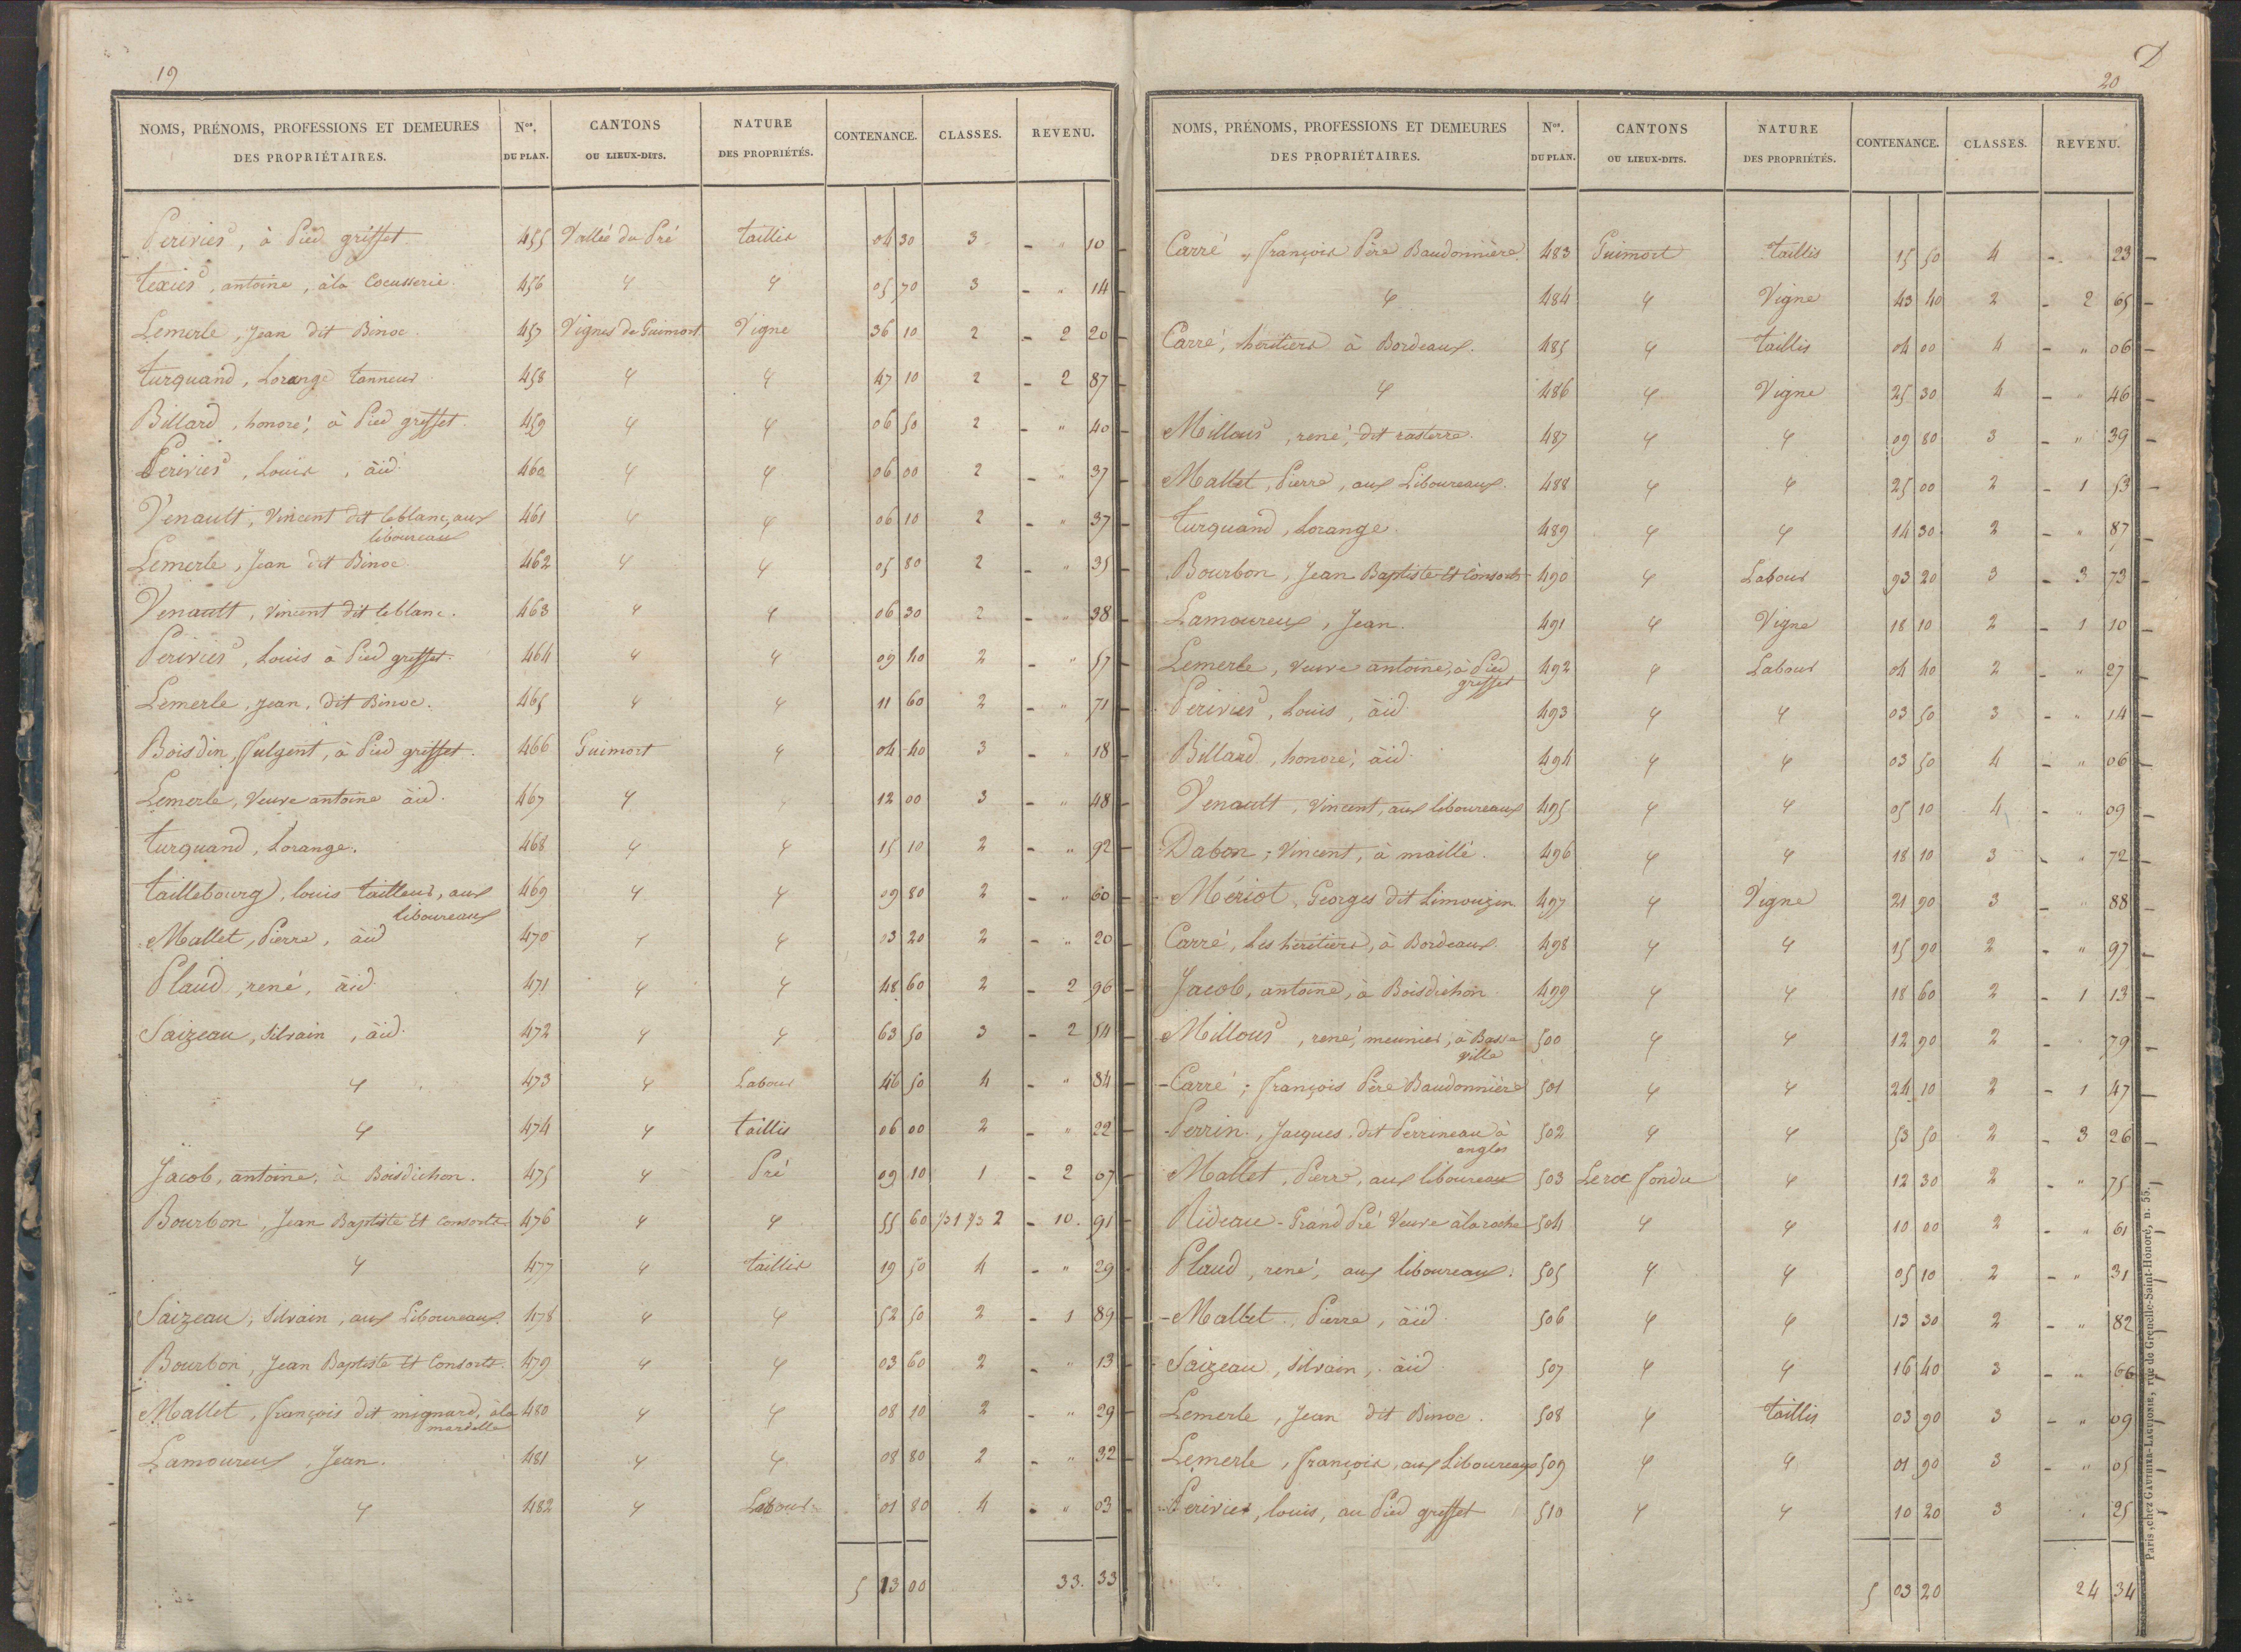 19
NOMS, PRÉNOMS, PROFESSIONS ET DEMEURES DES PROPRIÉTAIRES. Nos. DU PLAN. CANTONS OU LIEUX-DITS. NATURE DES PROPRIÉTÉS. CONTENANCE. CLASSES. REVENU.
Perivier, à Pied griffet 455 Vallée du Pré taillis 04 30 3 - " 10
texier, antoine, à la Cocusserie. 456 " " 05 70 3 - " 14
Lemerle, Jean dit Binoc. 457 Vignes de Guimort Vigne 36 10 2 - 2 20
turquand, Lorange tanneur 458 " " 47 10 2 - 2 87
Billard, honoré, à Pied griffet. 459 " " 06 50 2 - " 40
Perivier, Louis, àid. 460 " " 06 00 2 - " 37
Venault, Vincent dit leblanc, aux liboureaux 461 " " 06 10 2 - " 37
Lemerle, Jean dit Binoc 462 " " 05 80 2 - " 35
Venault, Vincent dit leblanc. 463 " " 06 30 2 - " 38
Perivier, Louis à Pied griffet. 464 " " 09 40 2 - " 57
Lemerle, Jean, dit Binoc. 465 " " 11 60 2 - " 71
Boisdin, fulgent, à Pied griffet. 466 Guimort " 04 40 3 - " 18
Lemerle, Veuve antoine àid. 467 " " 12 00 3 - " 48
turquand, Lorange. 468 " " 15 10 2 - " 92
taillebourg, louis tailleur, aux liboureaux 469 " " 09 80 2 - " 60
Mallet, Pierre, àid 470 " " 03 20 2 - " 20
Plaud, rené, àid 471 " " 48 60 2 - 2 96
Saizeau, Silvain, àid. 472 " " 63 50 3 - 2 54
" 473 " Labour 46 50 4 - " 84
" 474 " taillis 06 00 2 - " 22
Jacob, antoine, à Boisdichon. 475 " Pré 09 10 1 - 2 07
Bourbon, Jean Baptiste et Consorts 476 " " 55 60 1/3 1 2/3 2 - 10. 91
" 477 " taillis 19 50 4 - " 29
Saizeau, Silvain, aux Liboureaux. 478 " " 52 50 2 - 1 89
Bourbon, Jean Baptiste et Consorts. 479 " " 03 60 2 - " 13
Mallet, françois dit mignard, à la mardelle 480 " " 08 10 2 - " 29
Lamoureux, Jean. 481 " " 08 80 2 - " 32
" 482 " Labour 01 80 4 - " 03
5 13 00 33. 33
20
NOMS, PRÉNOMS, PROFESSIONS ET DEMEURES DES PROPRIÉTAIRES. Nos. DU PLAN. CANTONS OU LIEUX-DITS. NATURE DES PROPRIÉTÉS. CONTENANCE. CLASSES. REVENU.
Carré, françois Père Baudonnière. 483 Guimort taillis 15 50 4 - 23
" 484 " Vigne 43 40 2 - 2 65
Carré, héritiers à Bordeaux. 485 " taillis 04 00 4 - " 06
" 486 " Vigne 25 30 4 - " 46
Millour, rené, dit rasterre. 487 " " 09 80 3 - " 39
Mallet, Pierre, aux Liboureaux. 488 " " 25 00 2 - 1 53
turquand, Lorange. 489 " " 14 30 2 - " 87
Bourbon, Jean Baptiste et Consorts 490 " Labour 93 20 3 - 3 73
Lamoureux, Jean. 491 " Vigne 18 10 2 - 1 10
Lemerle, Veuve antoine, à Pied griffet 492 " Labour 04 40 2 - " 27
Perivier, Louis, àid 493 " " 03 50 3 - " 14
Billard, honoré, àid. 494 " " 03 50 4 - " 06
Venault, Vincent, aux liboureaux 495 " " 05 10 4 - " 09
Dabon, Vincent, à maillé. 496 " " 18 10 3 - " 72
Mériot, Georges dit Limouzin 497 " Vigne 21 90 3 - " 88
Carré, Les héritiers, à Bordeaux. 498 " " 15 90 2 - " 97
Jacob, antoine, à Boisdichon 499 " " 18 60 2 - 1 13
Millour, rené, meunier, à Basse ville 500 " " 12 90 2 - " 79
Carré, françois Père Baudonnière 501 " " 24 10 2 - 1 47
Perrin, Jacques dit Perrineau à angles 502 " " 53 50 2 - 3 26
Mallet, Pierre, aux liboureaux 503 Le roc fondu " 12 30 2 - " 75
Rideau - Grand Pré Veuve à la roche 504 " " 10 00 2 - " 61
Plaud, rené, aux liboureaux. 505 " " 05 10 2 - " 31
Mallet, Pierre, àid 506 " " 13 30 2 - " 82
Saizeau, Silvain, àid 507 " " 16 40 3 - " 66
Lemerle, Jean dit Binoc. 508 " taillis 03 90 3 - " 09
Lemerle, françois, aux Liboureaux 509 " " 01 90 3 - " 05
Perivier, louis, au Pied griffet 510 " " 10 20 3 " 25
5 03 20 24 34
Paris, chez GAUTHIER-LAGUIONIE, rue de Grenelle-Saint-Honoré, n. 55.